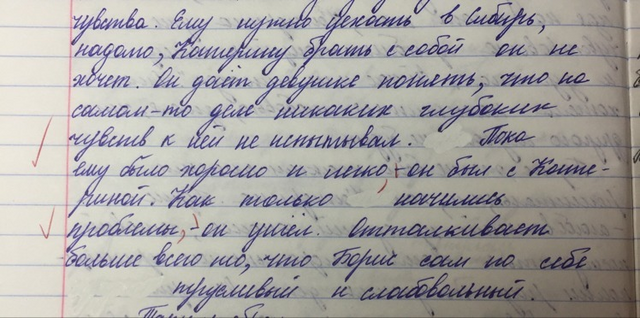 чувства. Ему нужно уехать в Сибирь,
надолго, Катерину брать с собой он не
хочет. Он даёт девушке понять, что на
самом-то деле никаких глубоких
чувств к ней не испытывал. Пока
ему было хорошо и легко, - он был с Кате-
риной. Как только начались
проблемы, - он ушёл. Отталкивает
больше всего то, что Борис сам по себе
трусливый и слабовольный.